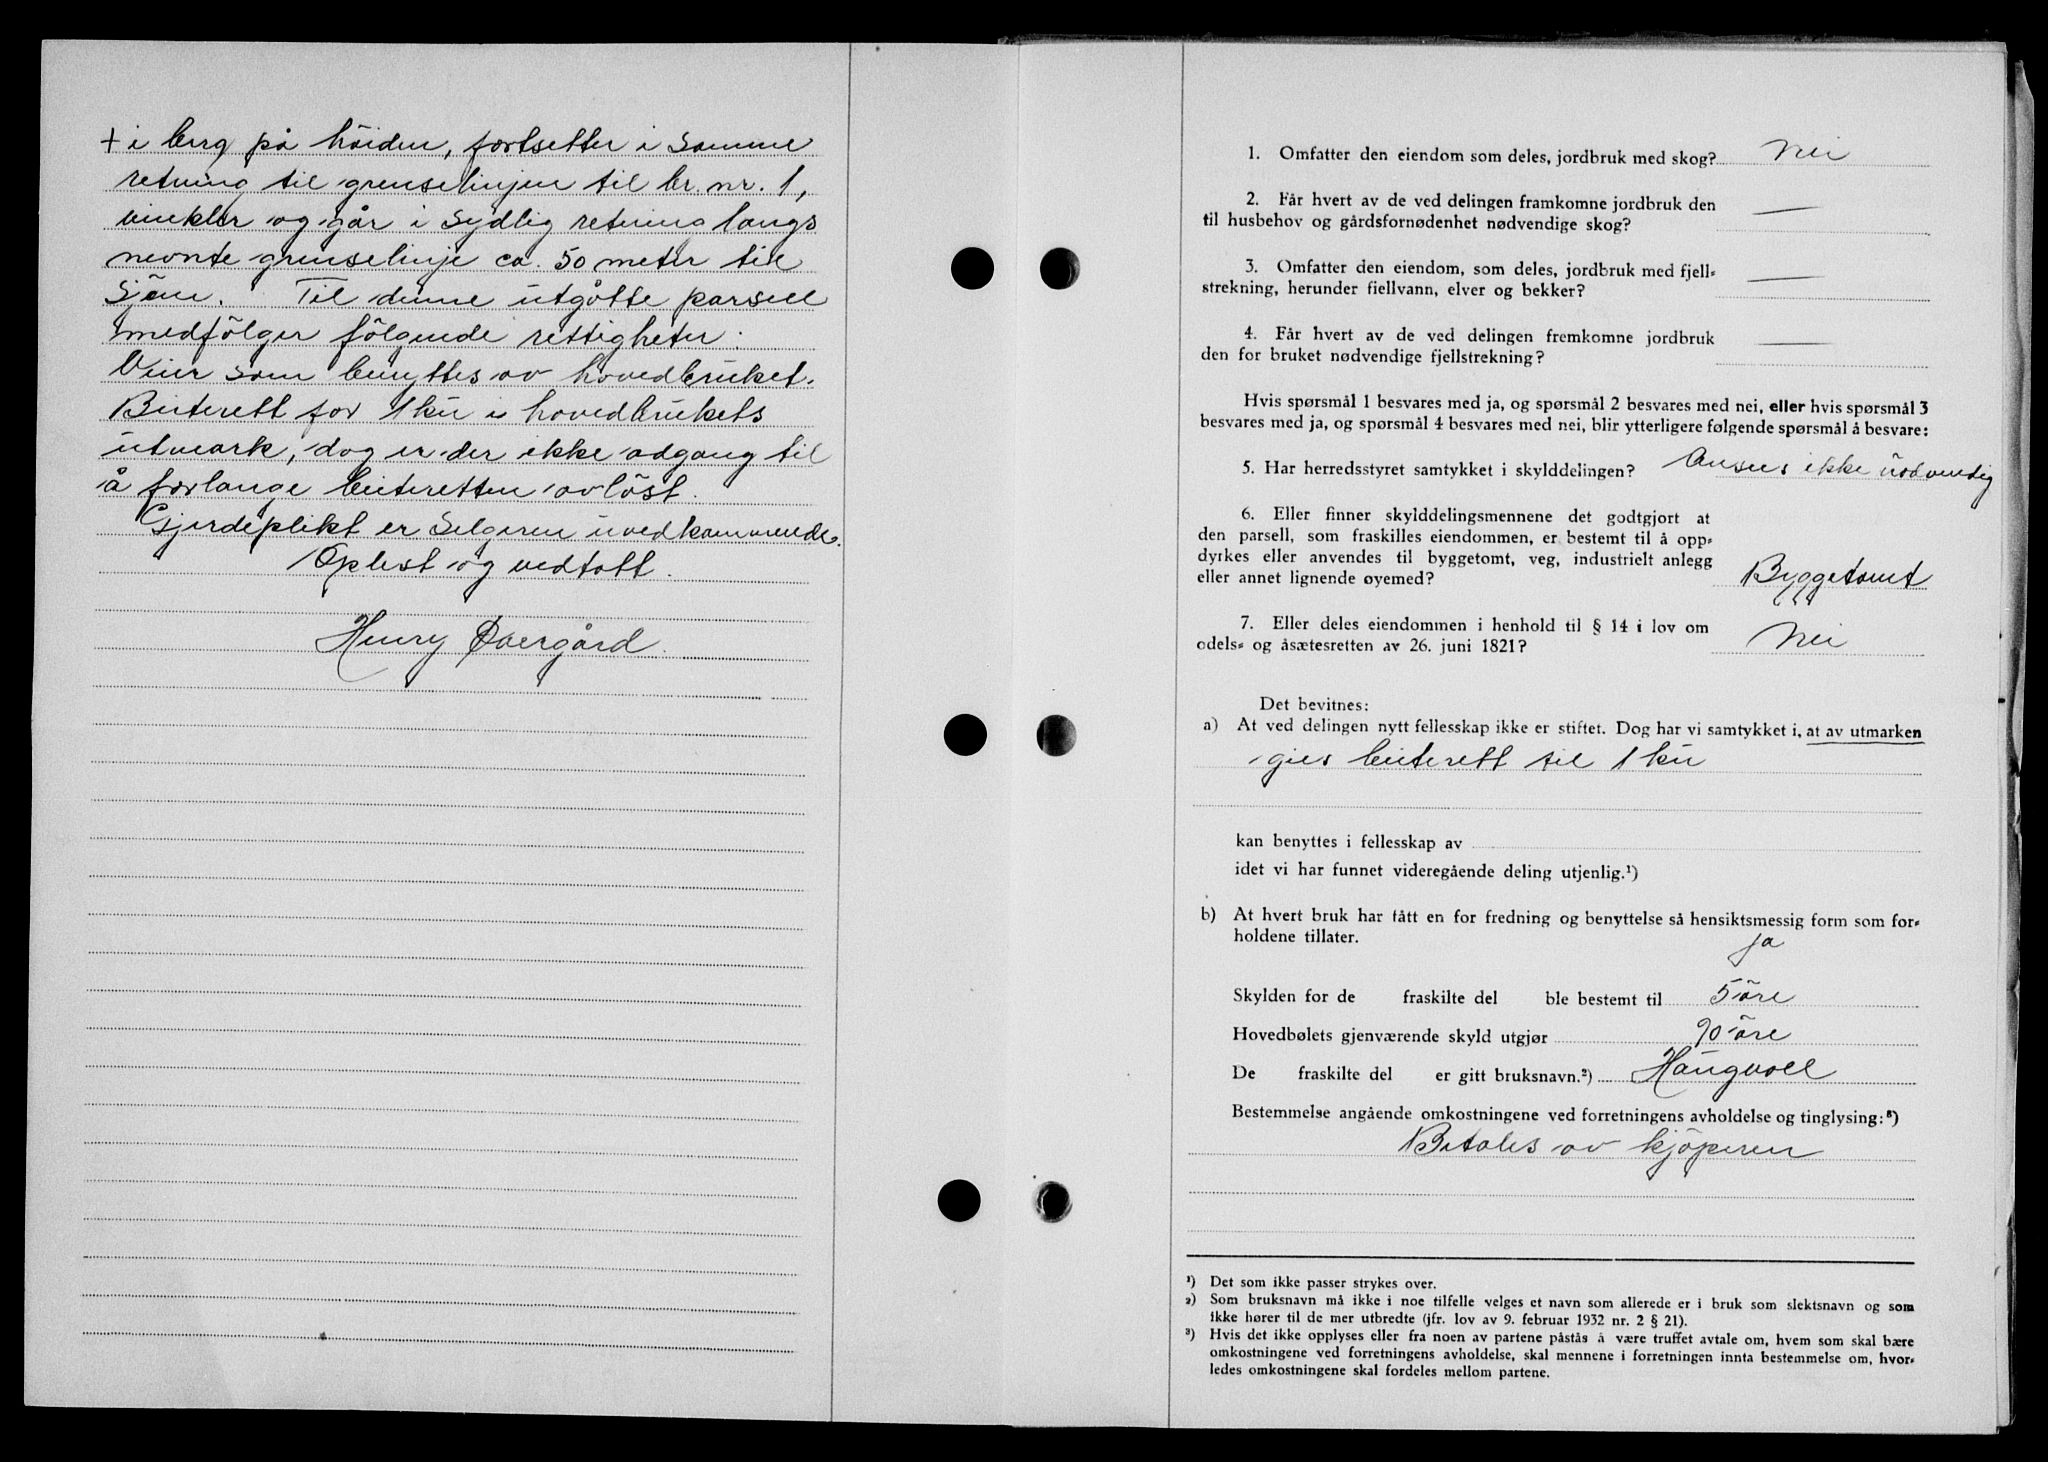 + i berg på höiden, fortsetter i samme
retning til grenselinjen til br. nr. 1,
vinkler og går i sydlig retning langs
nevnte grenselinje ca. 50 meter til
sjöen. Til denne utgåtte parsell
medfölger fölgende rettigheter:
Veier som benyttes av hovedbruket.
Beiterett for 1 ku i hovedbrukets
utmark, dog er der ikke adgang til
å forlange beiteretten avlöst.
Gjerdeplikt er selgeren uvedkommende.
Oplest og vedtatt.
Henry Øvergård.
1. Omfatter den eiendom som deles, jordbruk med skog? Nei
2. Får hvert av de ved delingen framkomne jordbruk den
til husbehov og gårdsfornødenhet nødvendige skog? —
3. Omfatter den eiendom, som deles, jordbruk med fjell=
strekning, herunder fiellvann, elver og bekker? —
4. Får hvert av de ved delingen fremkomne jordbruk
den for bruket nødvendige fjellstrekning? —
Hvis spørsmål 1 besvares med ja, og spørsmål 2 besvares med nei, eller hvis spørsmål 3
besvares med ja, og spørsmål 4 besvares med nei, blir ytterligere følgende spørsmål å besvare:
5. Har herredsstyret samtykket i skylddelingen? Anses ikke nödvendig
6. Eller finner skylddelingsmennene det godtgjort at
den parsell, som fraskilles eiendommen, er bestemt til å opp=
dyrkes eller anvendes til byggetomt, veg, industrielt anlegg
eller annet lignende øyemed? Byggetomt
7. Eller deles eiendommen i henhold til § 14 i lov om
odels= og åsætesretten av 26. juni 1821? Nei
Det bevitnes:
a) At ved delingen nytt fellesskap ikke er stiftet. Dog har vi samtykket i, at av utmarken
gies beiterett til 1 ku
kan benyttes i fellesskap av
idet vi har funnet videregående deling utjenlig.¹)
b) At hvert bruk har fått en for fredning og benyttelse så hensiktsmessig form som for=
holdene tillater. ja
Skylden for de fraskilte del ble bestemt til 5 öre
Hovedbølets gjenværende skyld utgjør 90 öre
De fraskilte del er gitt bruksnavn.²) Haugvoll
Bestemmelse angående omkostningene ved forretningens avholdelse og tinglysing:³)
Betales av kjöperen
¹) Det som ikke passer strykes over.
²) Som bruksnavn må ikke i noe tilfelle velges et navn som allerede er i bruk som slektsnavn og som
ikke hører til de mer utbredte (jfr. lov av 9. februar 1932 nr. 2 § 21).
³) Hvis det ikke opplyses eller fra noen av partene påstås å være truffet avtale om, hvem som skal bære
omkostningene ved forretningens avholdelse, skal mennene i forretningen innta bestemmelse om, hvor=
ledes omkostningene skal fordeles mellom partene.